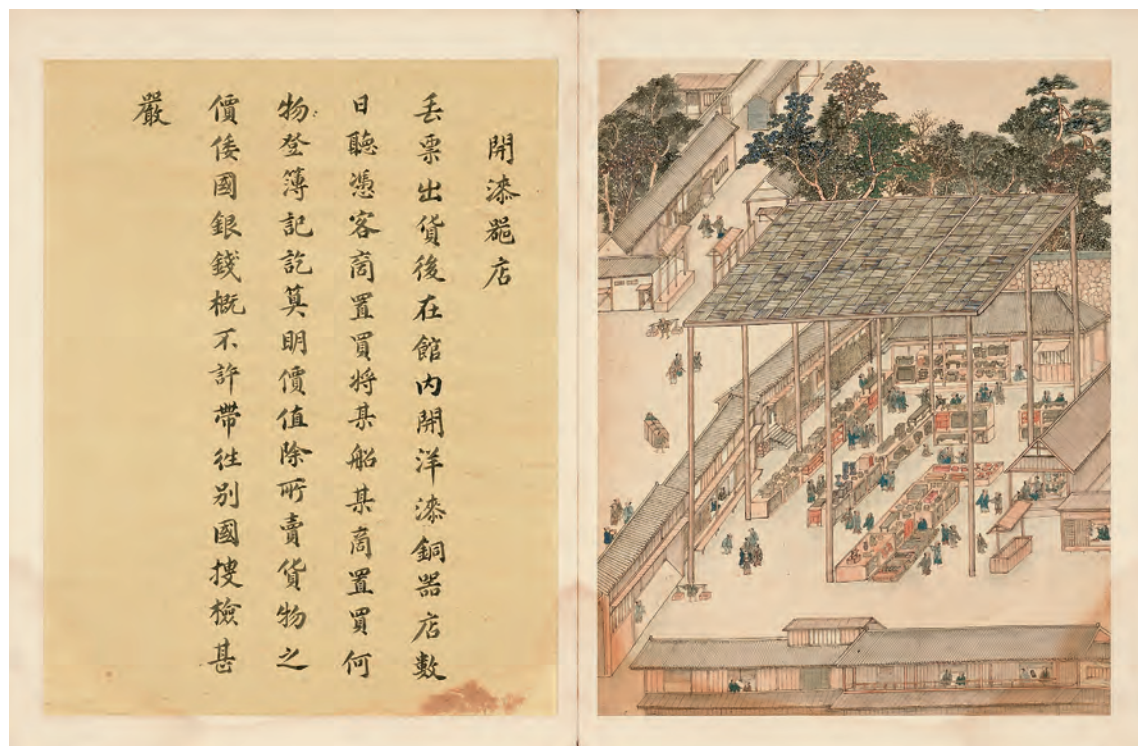 開漆器店
丟票出貨後在館内開洋漆銅器店數
日聽憑客商置買将某船某商置買何
物登簿記訖算明價值除所賣貨物之
價倭國銀錢概不許帶往别國搜檢甚
嚴